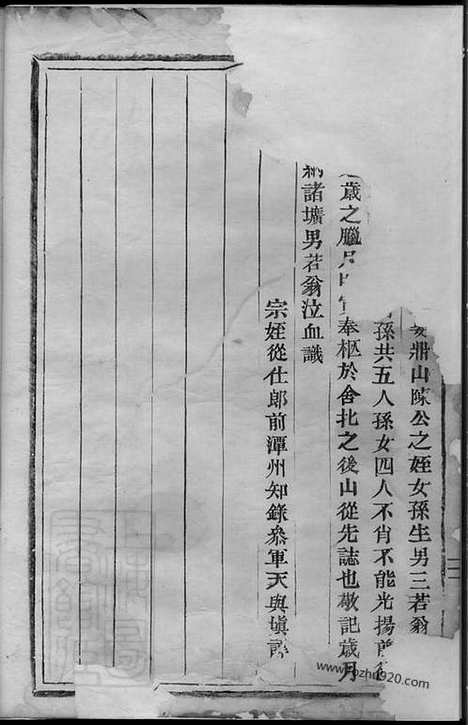 鼎山陳公之姪女孫生男三若翁
孫共五人孫女四人不肖不能光揚前
歲之臘月 奉柩於舍北之後山從先誌也敬記歲月
納諸壙男若翁泣血識
宗姪從仕郎前潭州知錄叅軍天與填諱
www.pozhu920.com